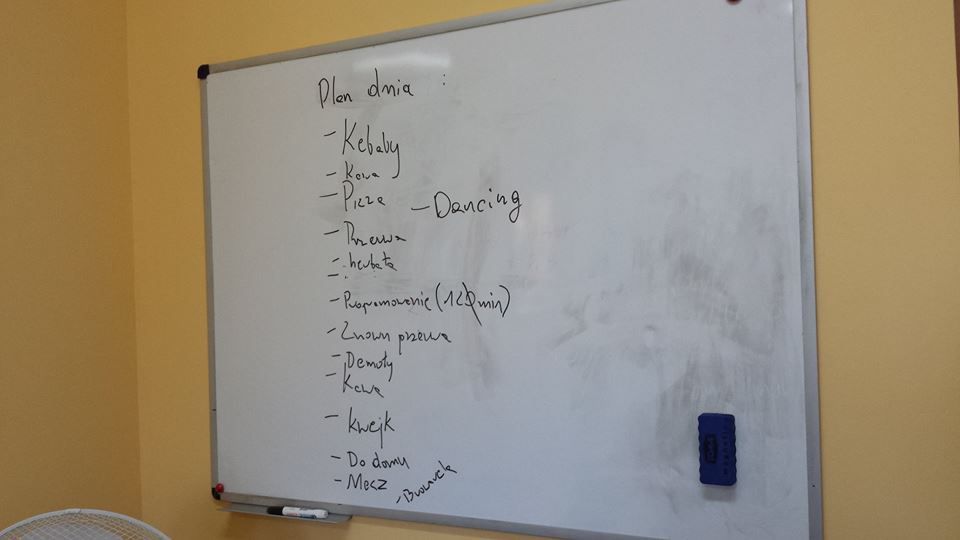 Plan dnia :
- Kebaby
- Kawa
- Pizza
- Dancing
- Przerwa
- herbata
- Programowanie (120 min)
- Znowu przerwa
- Demoty
- Kawa
- Kwejk
- Do domu
- Mecz
- Browarek